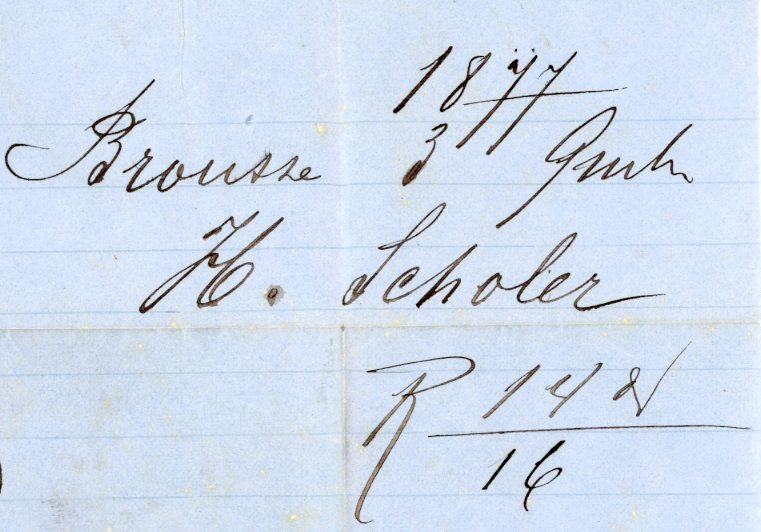 1877
Brousse 3
H. Scholer
R 14
16